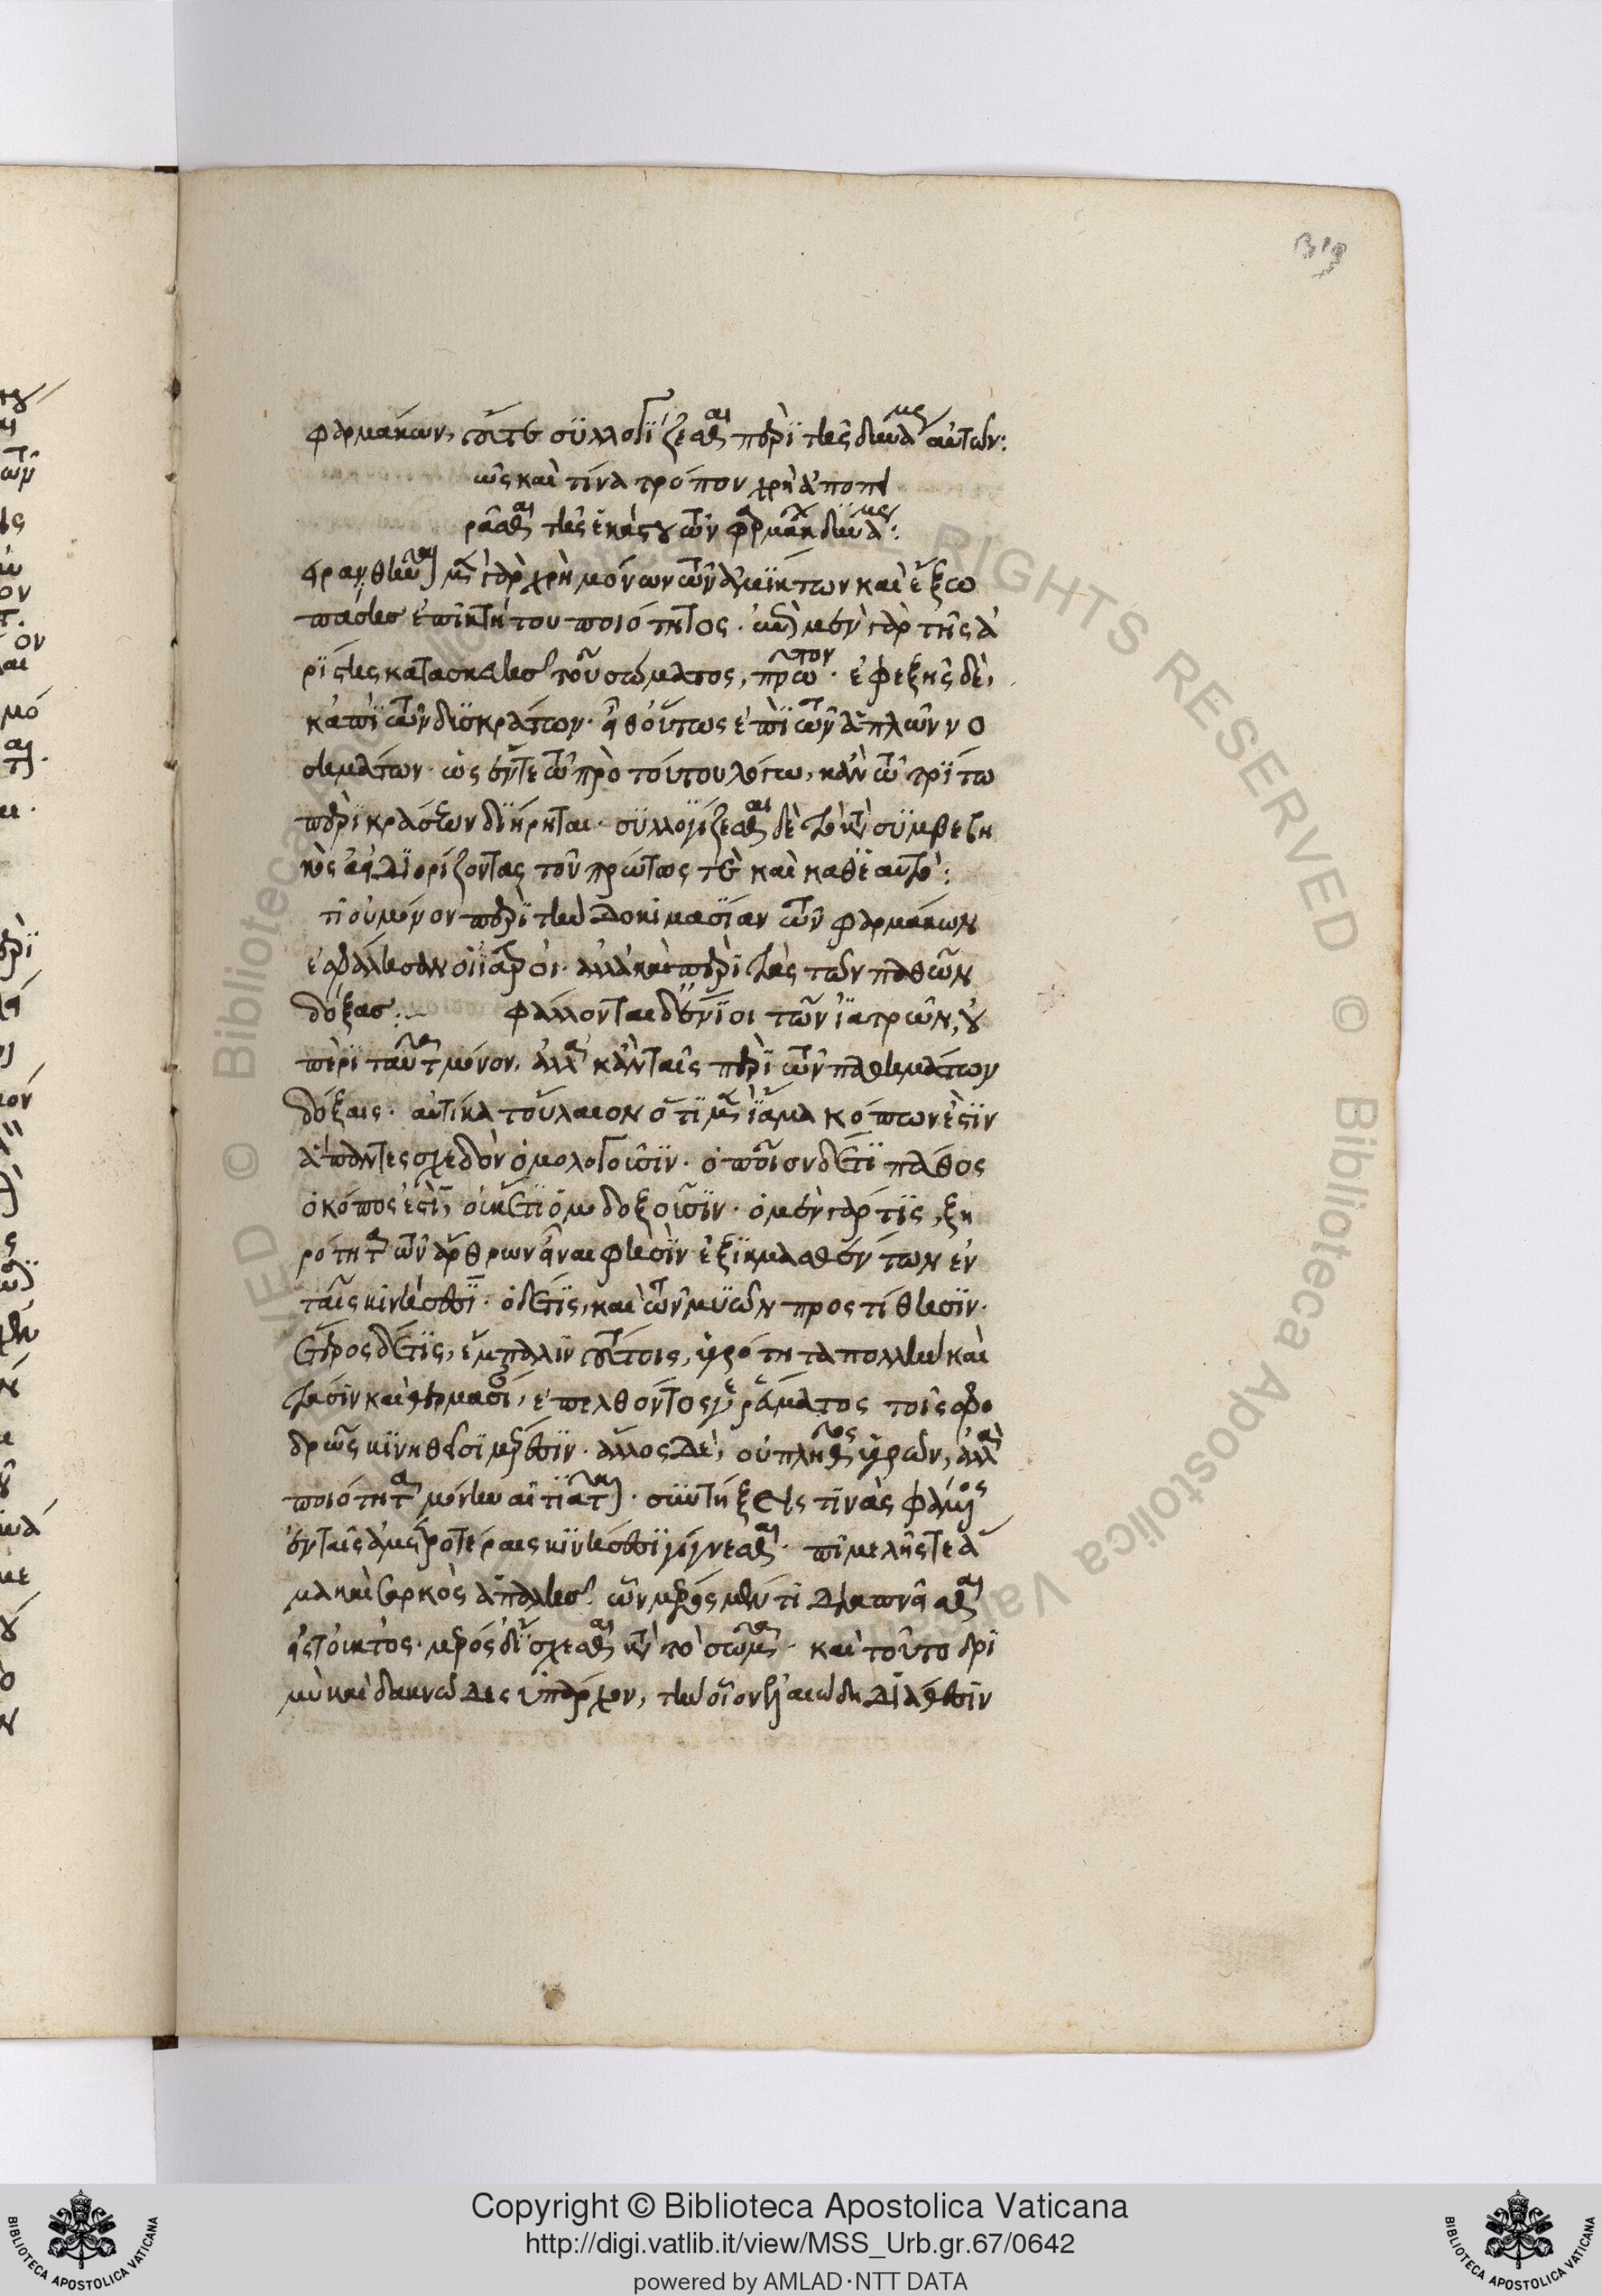 319
φαρμάκων, οὕτω συλλογίζεσθαι περὶ τῆς δυνάμεως αὐτῶν:
ὡς καὶ τίνα τρόπον χρὴ ἀποπει
ρᾶσθαι τῆς ἑκάστου τῶν φαρμάκων δυνάμεως:
μὲν γὰρ χρὴ μόνων τῶν ἀμίκτων καὶ ἔξω
πάσης ἐπικτήτου ποιότητος. ἐπὶ μὲν γὰρ τῆς ἀ
ρίστης κατασκευῆς τοῦ σώματος, πρῶτον. ἐφεξῆς δὲ,
κἀπὶ τῶν δυσκράτων. εἶθ' οὕτως ἐπὶ τῶν ἁπλῶν νο
σημάτων. ὡς ἔν τε τῷ πρὸ τούτου λόγῳ, κἀν τῷ τρίτῳ
περὶ κράσεων διῄρηται. συλλογίζεσθαι δὲ τὸ κατὰ συμβεβη
κὸς ἀεὶ διορίζοντας τοῦ πρώτως τε καὶ καθ' ἑαυτό:
τί οὐ μόνον περὶ τὴν δοκιμασίαν τῶν φαρμάκων
ἐσφάλησαν οἱ ἰατροί. ἀλλὰ καὶ περὶ τὰς τῶν παθῶν
δόξας:— σφάλλονται δ' ἔνιοι τῶν ἰατρῶν, οὐ
περὶ ταῦτα μόνον, ἀλλὰ κἀν ταῖς περὶ τῶν παθημάτων
δόξαις. αὐτίκα τοὔλαιον ὅτι μὲν ἴαμα κόπων ἐστὶν
ἅπαντες σχεδὸν ὁμολογοῦσιν. ὁποῖον δέ τι πάθος
ὁ κόπος ἐστὶ, οὐκέτι ὁμοδοξοῦσιν. ὁ μὲν γάρ τις, ξη
ρότητα τῶν ἄρθρων εἶναι φησὶν ἐξικμασθέντων ἐν
ταῖς κινήσεσι. ὁ δέ τις, καὶ τῶν μυῶν προστίθησιν.
ἕτερος δέ τις, ἔμπαλιν τούτοις, ὑγρότητα πολλὴν καὶ
τάσιν καὶ θερμασίαν, ἐπελθόντος ῥεύματος τοῖς σφο
δρῶς κινηθεῖσι μέρεσιν. ἄλλος δὲ, οὐ πλῆθος ὑγρῶν, ἀλλὰ
ποιότητα μόνην αἰτιᾶται. συντήξεις τινὰς φάμενος
ἐν ταῖς ἀμετροτέραις κινήσεσι γίγνεσθαι. πιμελῆς τε ἅ
μα καὶ σαρκὸς ἁπαλῆς. ὧν μέρος μέν τι διαπνεῖσθαι
εἰς τὸ ἐκτός. μέρος δ' ἴσχεσθαι κατὰ τὸ σῶμα. καὶ τοῦτο δρι
μὺ καὶ δακνῶδες ὑπάρχον, τὴν οἷον διάθεσιν